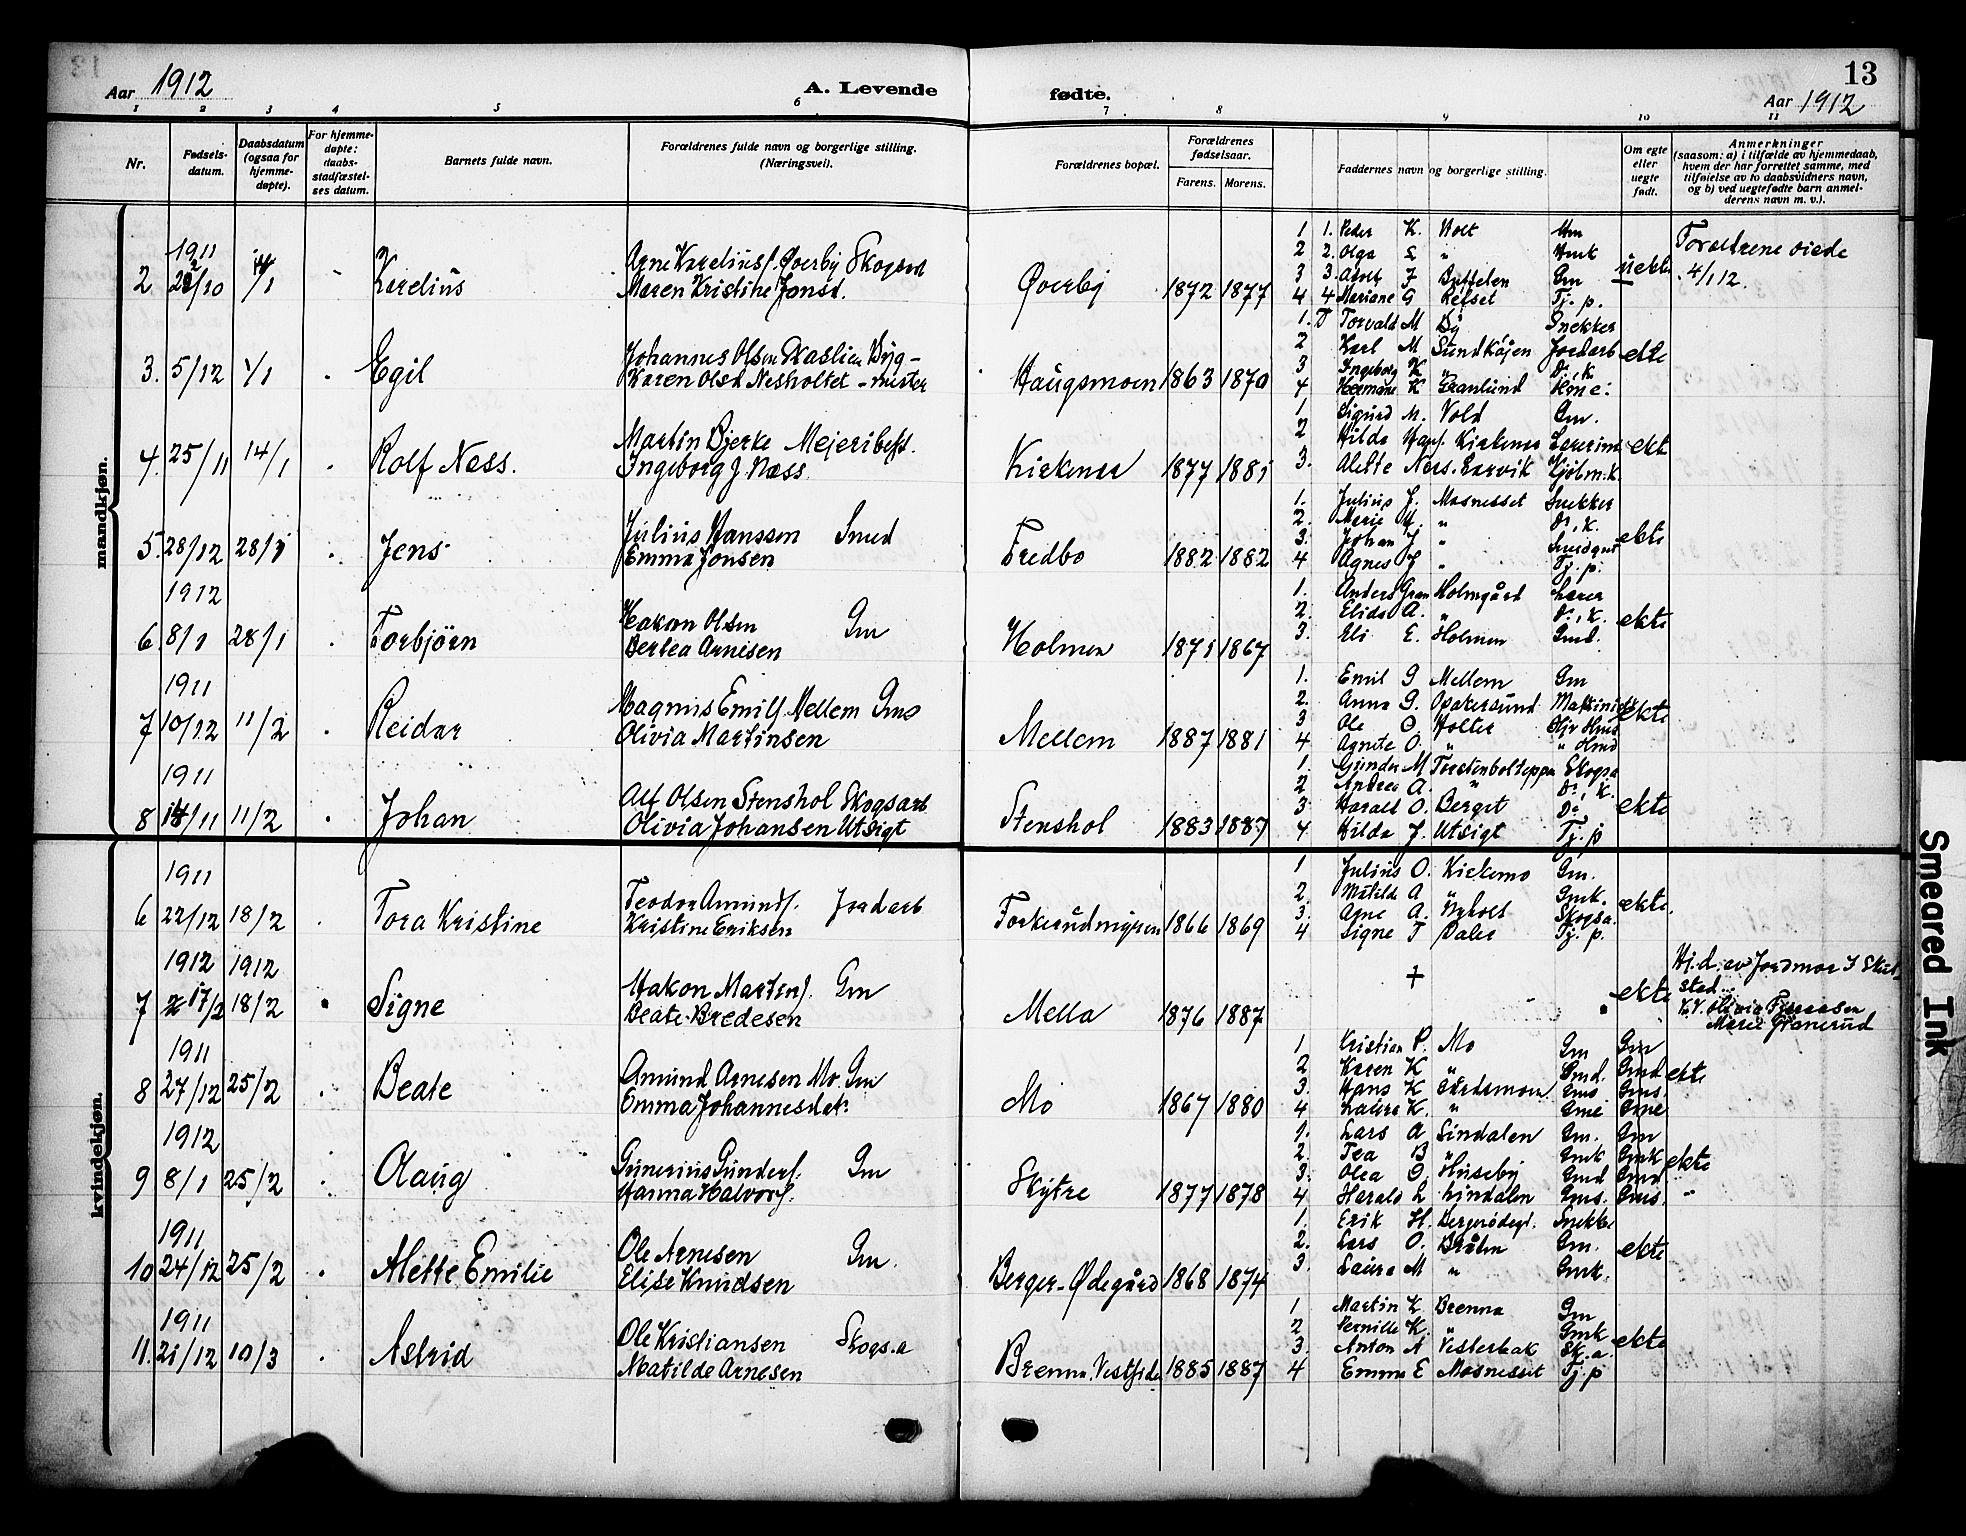 13
Aar 1912
A. Levende fødte.
Aar 1912
1 2 3 4 5 6 7 8 9 10 11
Nr.
Fødsels-
datum.
Daabsdatum
(ogsaa for
hjemme-
døpte).
For hjemme-
døpte:
daabs-
stadfæstel-
ses datum.
Barnets fulde navn.
Forældrenes fulde navn og borgerlige stilling.
(Næringsvei).
Forældrenes bopæl.
Forældrenes
fødselsaar.
Farens. Morens.
Faddernes navn og borgerlige stilling.
Om egte
eller
uegte
født.
Anmerkninger
(saasom: a) i tilfælde av hjemmedaab,
hvem der har forrettet samme, med
tilføielse av to daabsvidners navn,
og b) ved uegtefødte barn anmel-
derens navn m. v.).
mandkjøn.
1911
2 /10 /1 Karelius
Arne Kareliusf. Øverby Skogsarb
Maren Kristine Jonsd.
Øverby 1872 1877
1 1. Peder K. Holt Gm
2 2. Olga " Gmk
3 3. Adolf J Gm
4 4 Mariane G Refset Tj. p.
uekte
Forældrene viede
4/1 12.
3. 5/12 1/1 Egil
Johannes Olsen Haslien Byg-
Karen Olsd Nesholtet - mester
Haugsmoen 1863 1870
1. Torvald M By Snekker
2 Karl M Sundkøjen Jordarb
3 Ingeborg K " D: K.
4 Hermane K Granlund
ekte
4. 25/11 14/1 Rolf Næss.
Martin Bjerke Mejeribest.
Ingeborg J. Næss
Kirkenær 1877 1885
1 Sigurd M. Vold Gm.
2 Hilda Hanf. Kirkenær Lærerinde
3. Alette Næss.
ekte
5. 28/12 28/1 Jens
Julius Hanssen Smed
Emma Jonsen
Fredbo 1882 1882
1. Julius J. Mosnesset Snekker
2. Marie H. " D:, K.
3. Johan J "
4 Agnes J " Tj. p.
ekte
1912
6 8/1 28/1 Torbjörn
Hakon Olsen Gm
Bertea Arnesen
Holmen 1871 1867
1. Anders Gran Holmgård Lærer
2. Elida A. " D:, K.
3. Eli E. Holmen Gmd.
ekte
1911
7 10/12 11/2 Reidar
Magnus Emilf. Mellem Gms
Olivia Martinsen
Mellem 1887 1881
1. Emil G Mellem Gm
2. Anna G. Opakersund
3 Ole O Holter
4 Agnete O. "
ekte
1911
8 /11 11/2 Johan
Alf Olsen Stenshol Skogsarb
Olivia Johansen Utsigt
Stenshol 1883 1887
1. Gunder M Torstenboltoppen Skogsa
2 Andrea A. " D:, K.
3. Harald O. Berget D:
4 Hilda J. Utsigt Tj. p
ekte
kvindekjøn.
1911
6 22/12 18/2 Tora Kristine
Teodor Amundf. Jordarb
Kristine Eriksen
Torkerudmyren 1866 1869
1 Julius O. Kirkemo Gm.
2. Matilde A " Gmk.
3. Arne A. Nyholt Skogsa.
4 Signe T Dales Tj. p.
ekte.
1912 1912
7 17/2 18/2 Signe
Hakon Martinf. Gm
Beate Bredesen
Mella 1876 1887
+
ekte
Hj. d. av Jordmor I
stad.
V.V. Olivia
Marie Granerud
1911
8 27/12 25/2 Beate
Amund Arnesen Mo. Gm
Emma Johannesdat.
Mo 1867 1880
1 Kristian P. Mo Gm Gm
2 Karen K " Gmd. Gmd
3. Hans K Gms Gms.
4 Laura K. " Gme Gme
ekte
1912
9 8/1 25/2 Olaug
Grunerius Gunderf. Gm
Hanna Halvorf.
Skytre 1877 1878
1. Lars A Lindalen Gm. Gm
2. Tea B " Gmk Gmk
3. Olea O Huseby Gmd Gmd
4 Harald L Lindalen Gms. Gms.
ekte
"
1911
10 24/12 25/2 Alette Emilie
Ole Arnesen Gm.
Elise Knudsen
Berger-Ødegård 1868 1874
1. Erik H. Bergerødegd. Snekke
2. Lars O. Bråten Gm.
3. Laura M " Gmk.
ekte
1911
11. 21/12 10/3 Astrid
Ole Kristiansen Skogs.a
Matilde Arnesen
Brenna, Vestside 1885 1887
1 Martin K. Brenna Gm
2 Pernille K. " Gmk
3. Anton A Vesterbak Sk. a
4 Emma E Mosnesset Tj. p
ekte
Smeared Ink